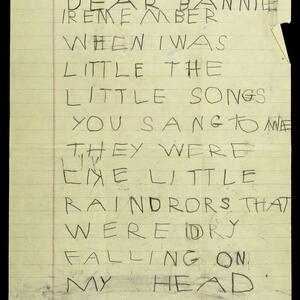 DEAR BANNIE
I REMEMBER
WHEN I WAS
LITTLE THE
LITTLE SONGS
YOU SANG TO ME
THEY WERE
LIKE LITTLE
RAINDRORS THAT
WERE DRY
FALLING ON
MY HEAD